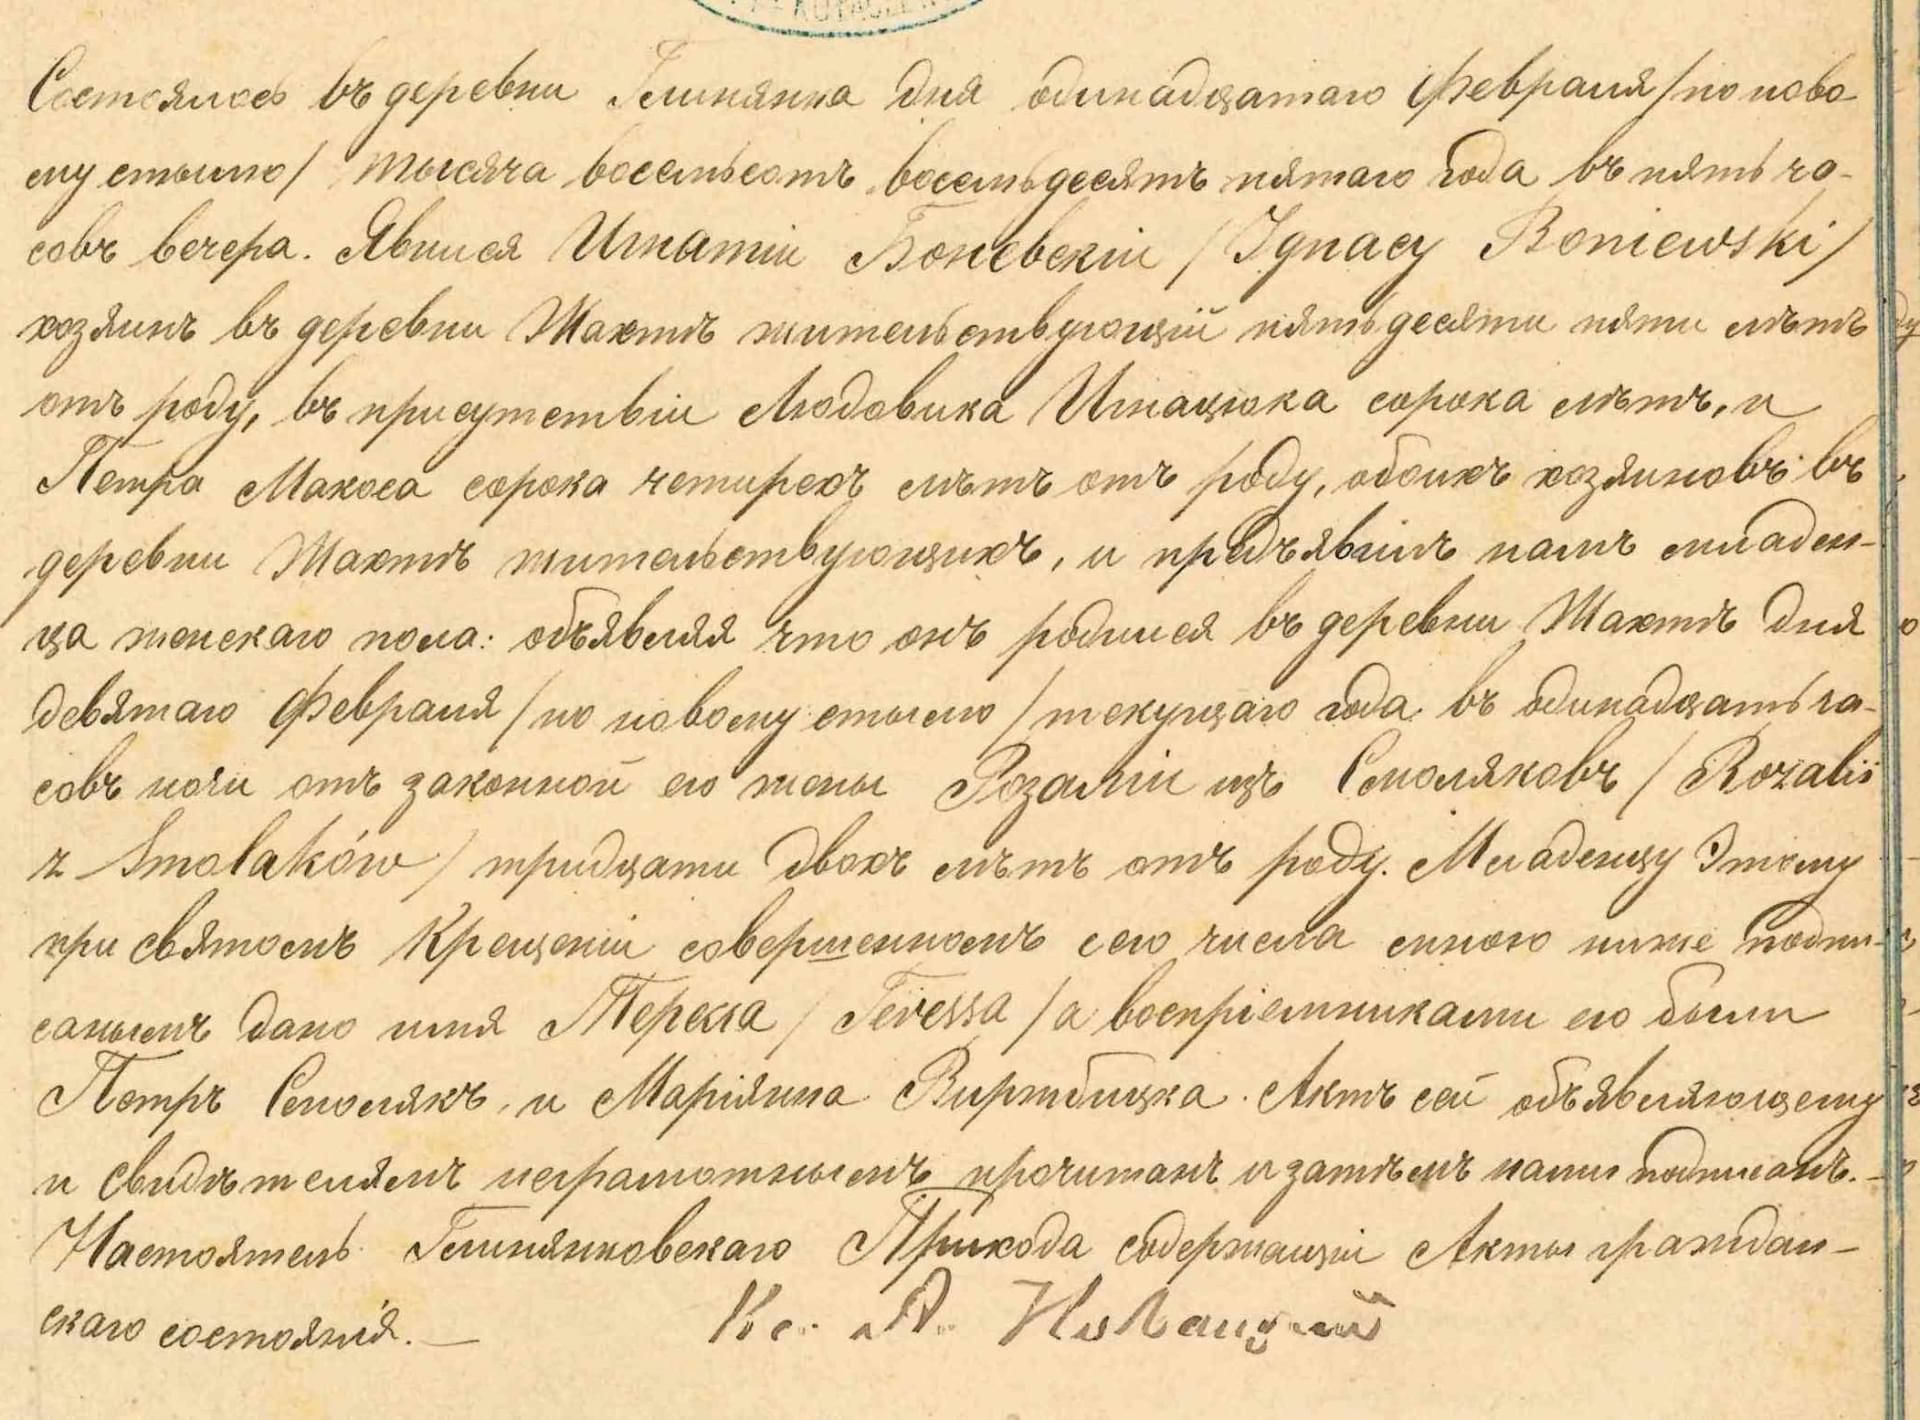 KOWACZEW
Состоялось въ деревни Глинянка дня одинадцатаго Февраля /по ново-
му стылю/ тысяча восемьсотъ восемьдесятъ пятаго года въ пять ча-
совъ вечера. Явился Игнатіи Боневскіи / Ignacy Boniewski /
хозяинъ въ деревни Жахтѣ жительствующій пятьдесяти пяти лѣтъ
отъ роду, въ присутствіи Людовика Игнацюка сорока лѣтъ, и
Петра Макоса сорока четирехъ лѣтъ отъ роду, обоихъ хозяиновъ въ
деревни Жахтѣ жительствующихъ, и предъявилъ намъ младен-
ца женскаго пола: объявляя что онъ родился въ деревни Жахтѣ дня
девятаго Февраля /по новому стылю/ текущаго года въ одинадцать ча-
совъ ночи отъ законной его жены Розаліи изъ Смоляковъ / Rozalii
z Smolaków / тридцати двохъ лѣтъ отъ роду. Младенцу Этому
при святомъ Крещеніи совершенномъ сего числа мною ниже подпи-
санымъ дано имя Тересса / Teressa / а воспріемниками его были
Петръ Смолякъ, и Маріянна Виржбицка. Актъ сей объявляющему
и свидѣтелямъ неграмотнымъ прочитанъ и затѣмъ нами подписанъ.-
Настоятель Глинянковскаго Прихода содержащіи Акты граждан-
скаго состоянія.— Кс. А.